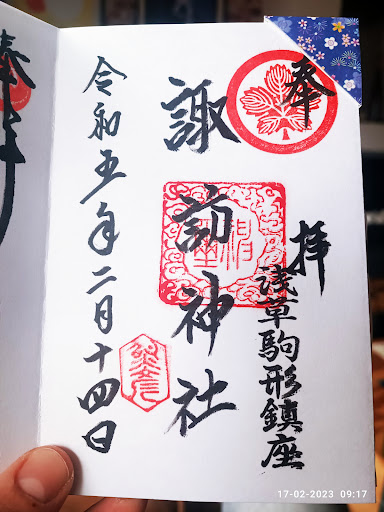 奉拝
浅草駒形鎮座
諏訪神社
令和五年二月十四日
17-02-2023 09:17